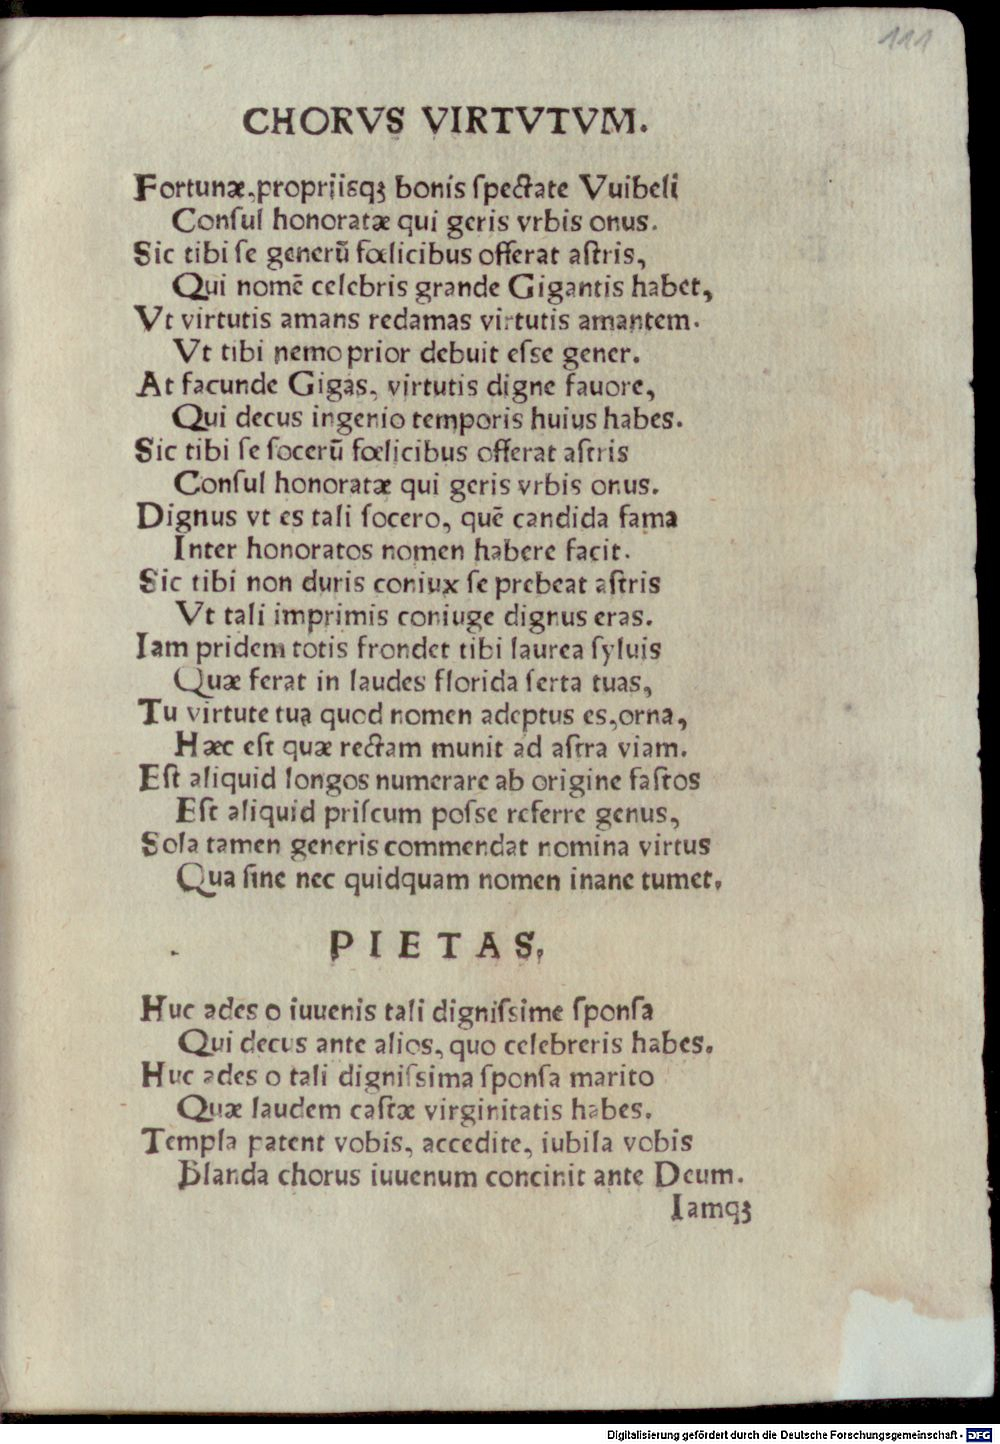 111
CHORVS VIRTVTVM.
Fortunæ, propriisqꝫ bonis ſpectate Vuibeli
Conſul honoratæ qui geris vrbis onus.
Sic tibi ſe generū fœlicibus offerat aſtris,
Qui nomē celebris grande Gigantis habet,
Vt virtutis amans redamas virtutis amantem.
Vt tibi nemo prior debuit eſse gener.
At facunde Gigas, virtutis digne fauore,
Qui decus ingenio temporis huius habes.
Sic tibi ſe ſocerū fœlicibus offerat aſtris
Conſul honoratæ qui geris vrbis onus.
Dignus vt es tali ſocero, quē candida fama
Inter honoratos nomen habere facit.
Sic tibi non duris coniux ſe prebeat aſtris
Vt tali imprimis coniuge dignus eras.
Iam pridem totis frondet tibi laurea ſyluis
Quæ ferat in laudes florida ſerta tuas,
Tu virtute tua quod nomen adeptus es, orna,
Hæc eſt quæ rectam munit ad aſtra viam.
Eſt aliquid longos numerare ab origine faſtos
Eſt aliquid priſcum poſse referre genus,
Sola tamen generis commendat nomina virtus
Qua ſine nec quidquam nomen inane tumet.
PIETAS.
Huc ades o iuuenis tali digniſsime ſponſa
Qui decus ante alios, quo celebreris habes.
Huc ades o tali digniſsima ſponſa marito
Quæ laudem caſtæ virginitatis habes.
Templa patent vobis, accedite, iubila vobis
Blanda chorus iuuenum concinit ante Deum.
Iamqꝫ
Digitalisierung gefördert durch die Deutsche Forschungsgemeinschaft - DFG